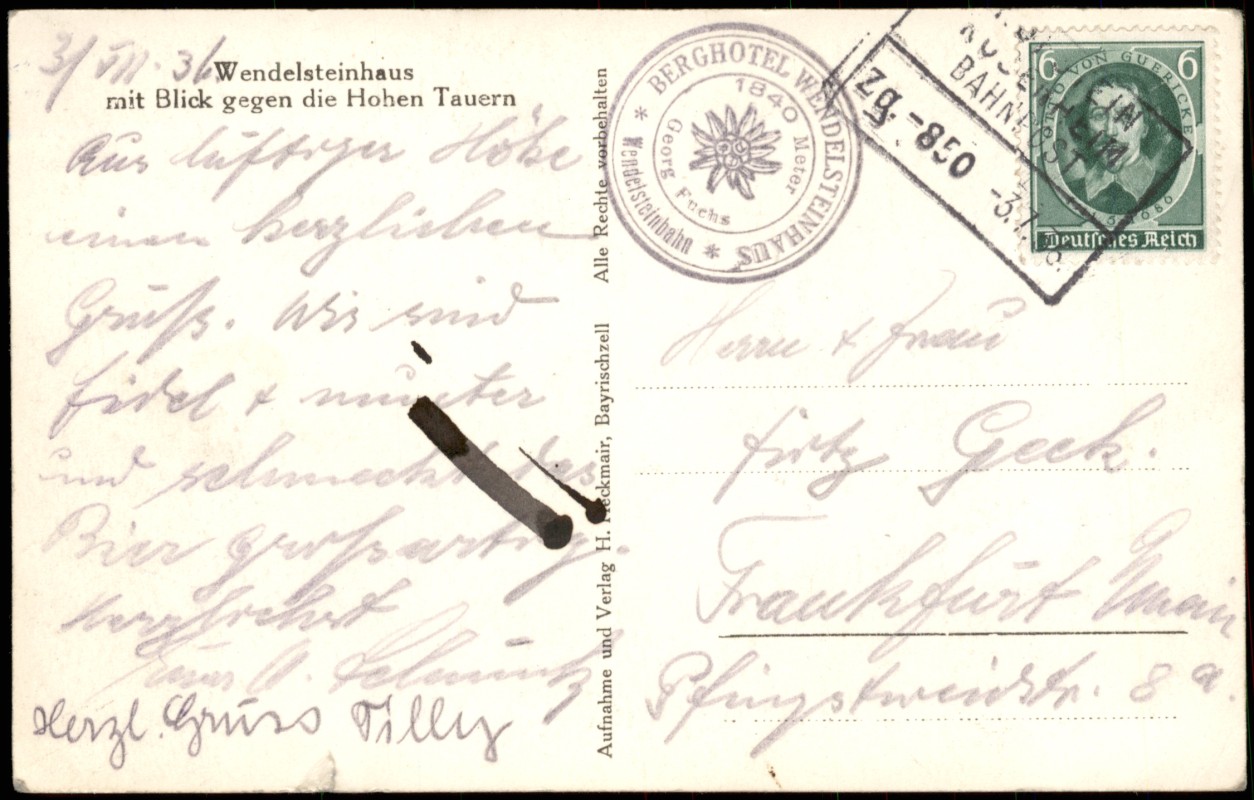 3/VII. 36
Wendelsteinhaus
mit Blick gegen die Hohen Tauern
Aus luftiger Höhe
einen herzlichen
Gruß. Wir sind
fidel + munter
und schmeckt das
Bier großartig.
Herzlichst
Herzl. Gruss Tilly
Alle Rechte vorbehalten
Aufnahme und Verlag H. Heckmair, Bayrischzell
BERGHOTEL WENDELSTEINHAUS
* Wendelsteinbahn *
1840 Meter
Georg Fuchs
BAHNPOST
Zg. -850
6 6
OTTO VON GUERICKE
Deutsches Reich
Herrn + Frau
Fritz Geck.
Frankfurt Main
Pfingstweidstr. 8 a.